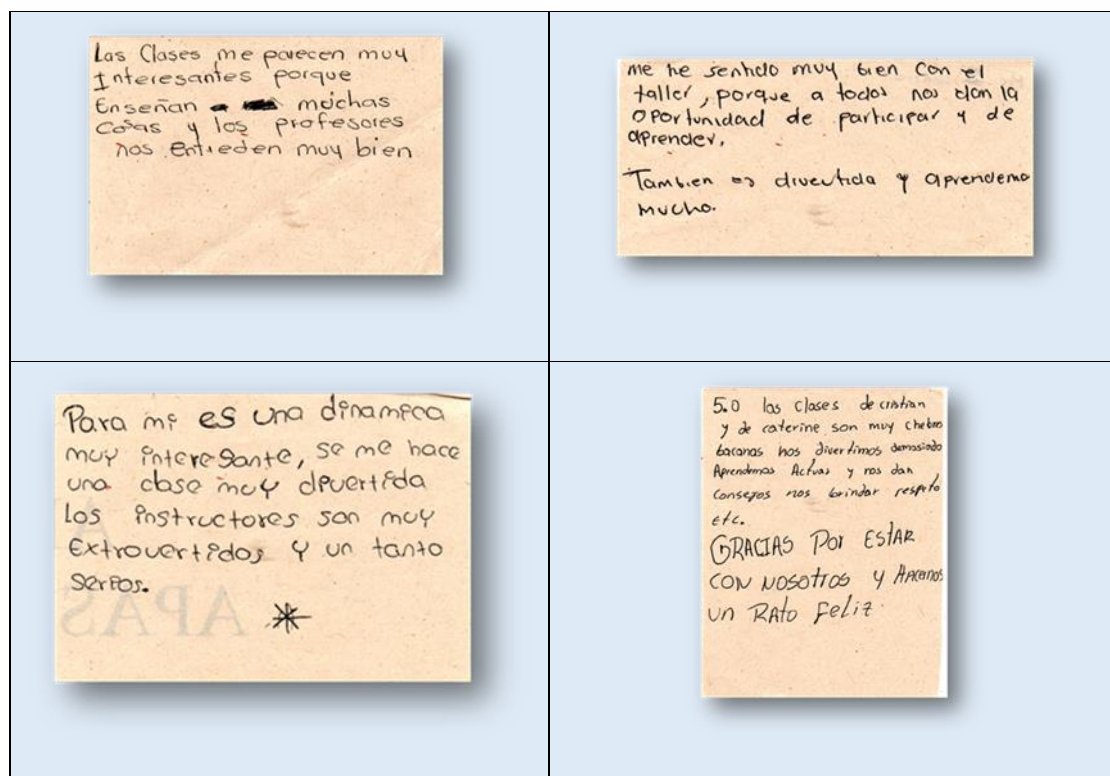 Las Clases me parecen muy
Interesantes porque
Enseñan a muchas
Cosas y los profesores
nos entieden muy bien
me he sentido muy bien con el
taller, porque a todos nos dan la
oportunidad de participar y de
aprender.
Tambien es divertida y aprendemo
mucho.
Para mi es una dinamica
muy interesante, se me hace
una clase muy divertida
Los instructores son muy
Extrovertidos y un tanto
serios.
APAS
5.0 las clases de cristian
y de caterine son muy chebre
bacanas nos divertimos demasiado
Aprendemos Actuar y nos dan
consejos nos brindar respeto
etc.
GRACIAS POR ESTAR
CON NOSOTROS y
UN RATO Feliz